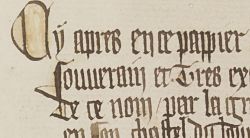 Cy apres en ce pappier
souuerain et Tres ex
de ce nom / par la gr
en son chastel du